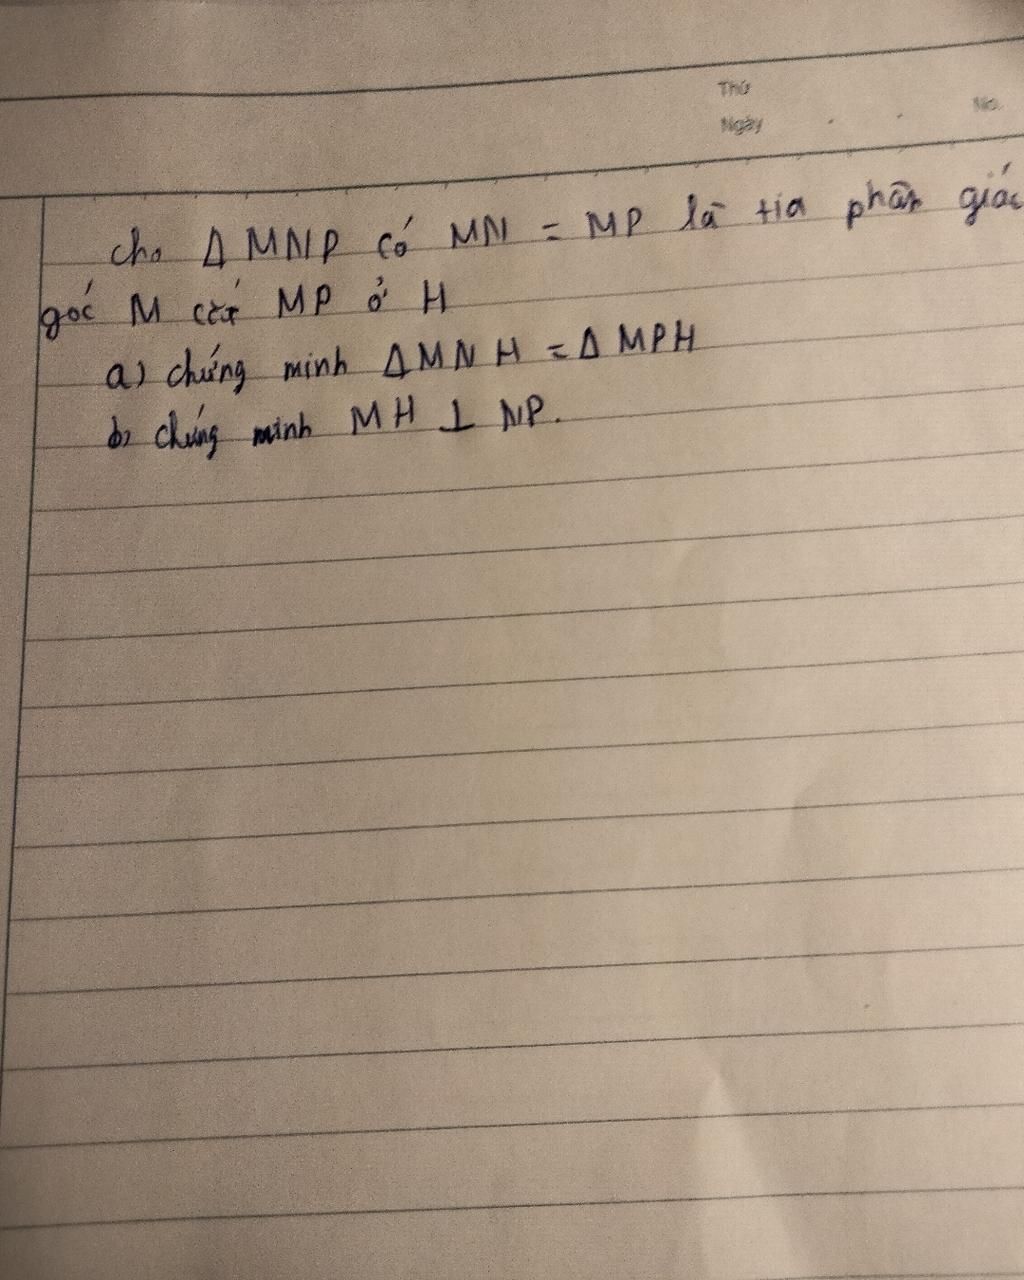 Thứ
Ngày
No.
cho Δ MNP có MN = MP là tia phân giác
góc M cắt MP ở H
a) chứng minh Δ MNH = Δ MPH
b) chứng minh MH ⊥ NP.